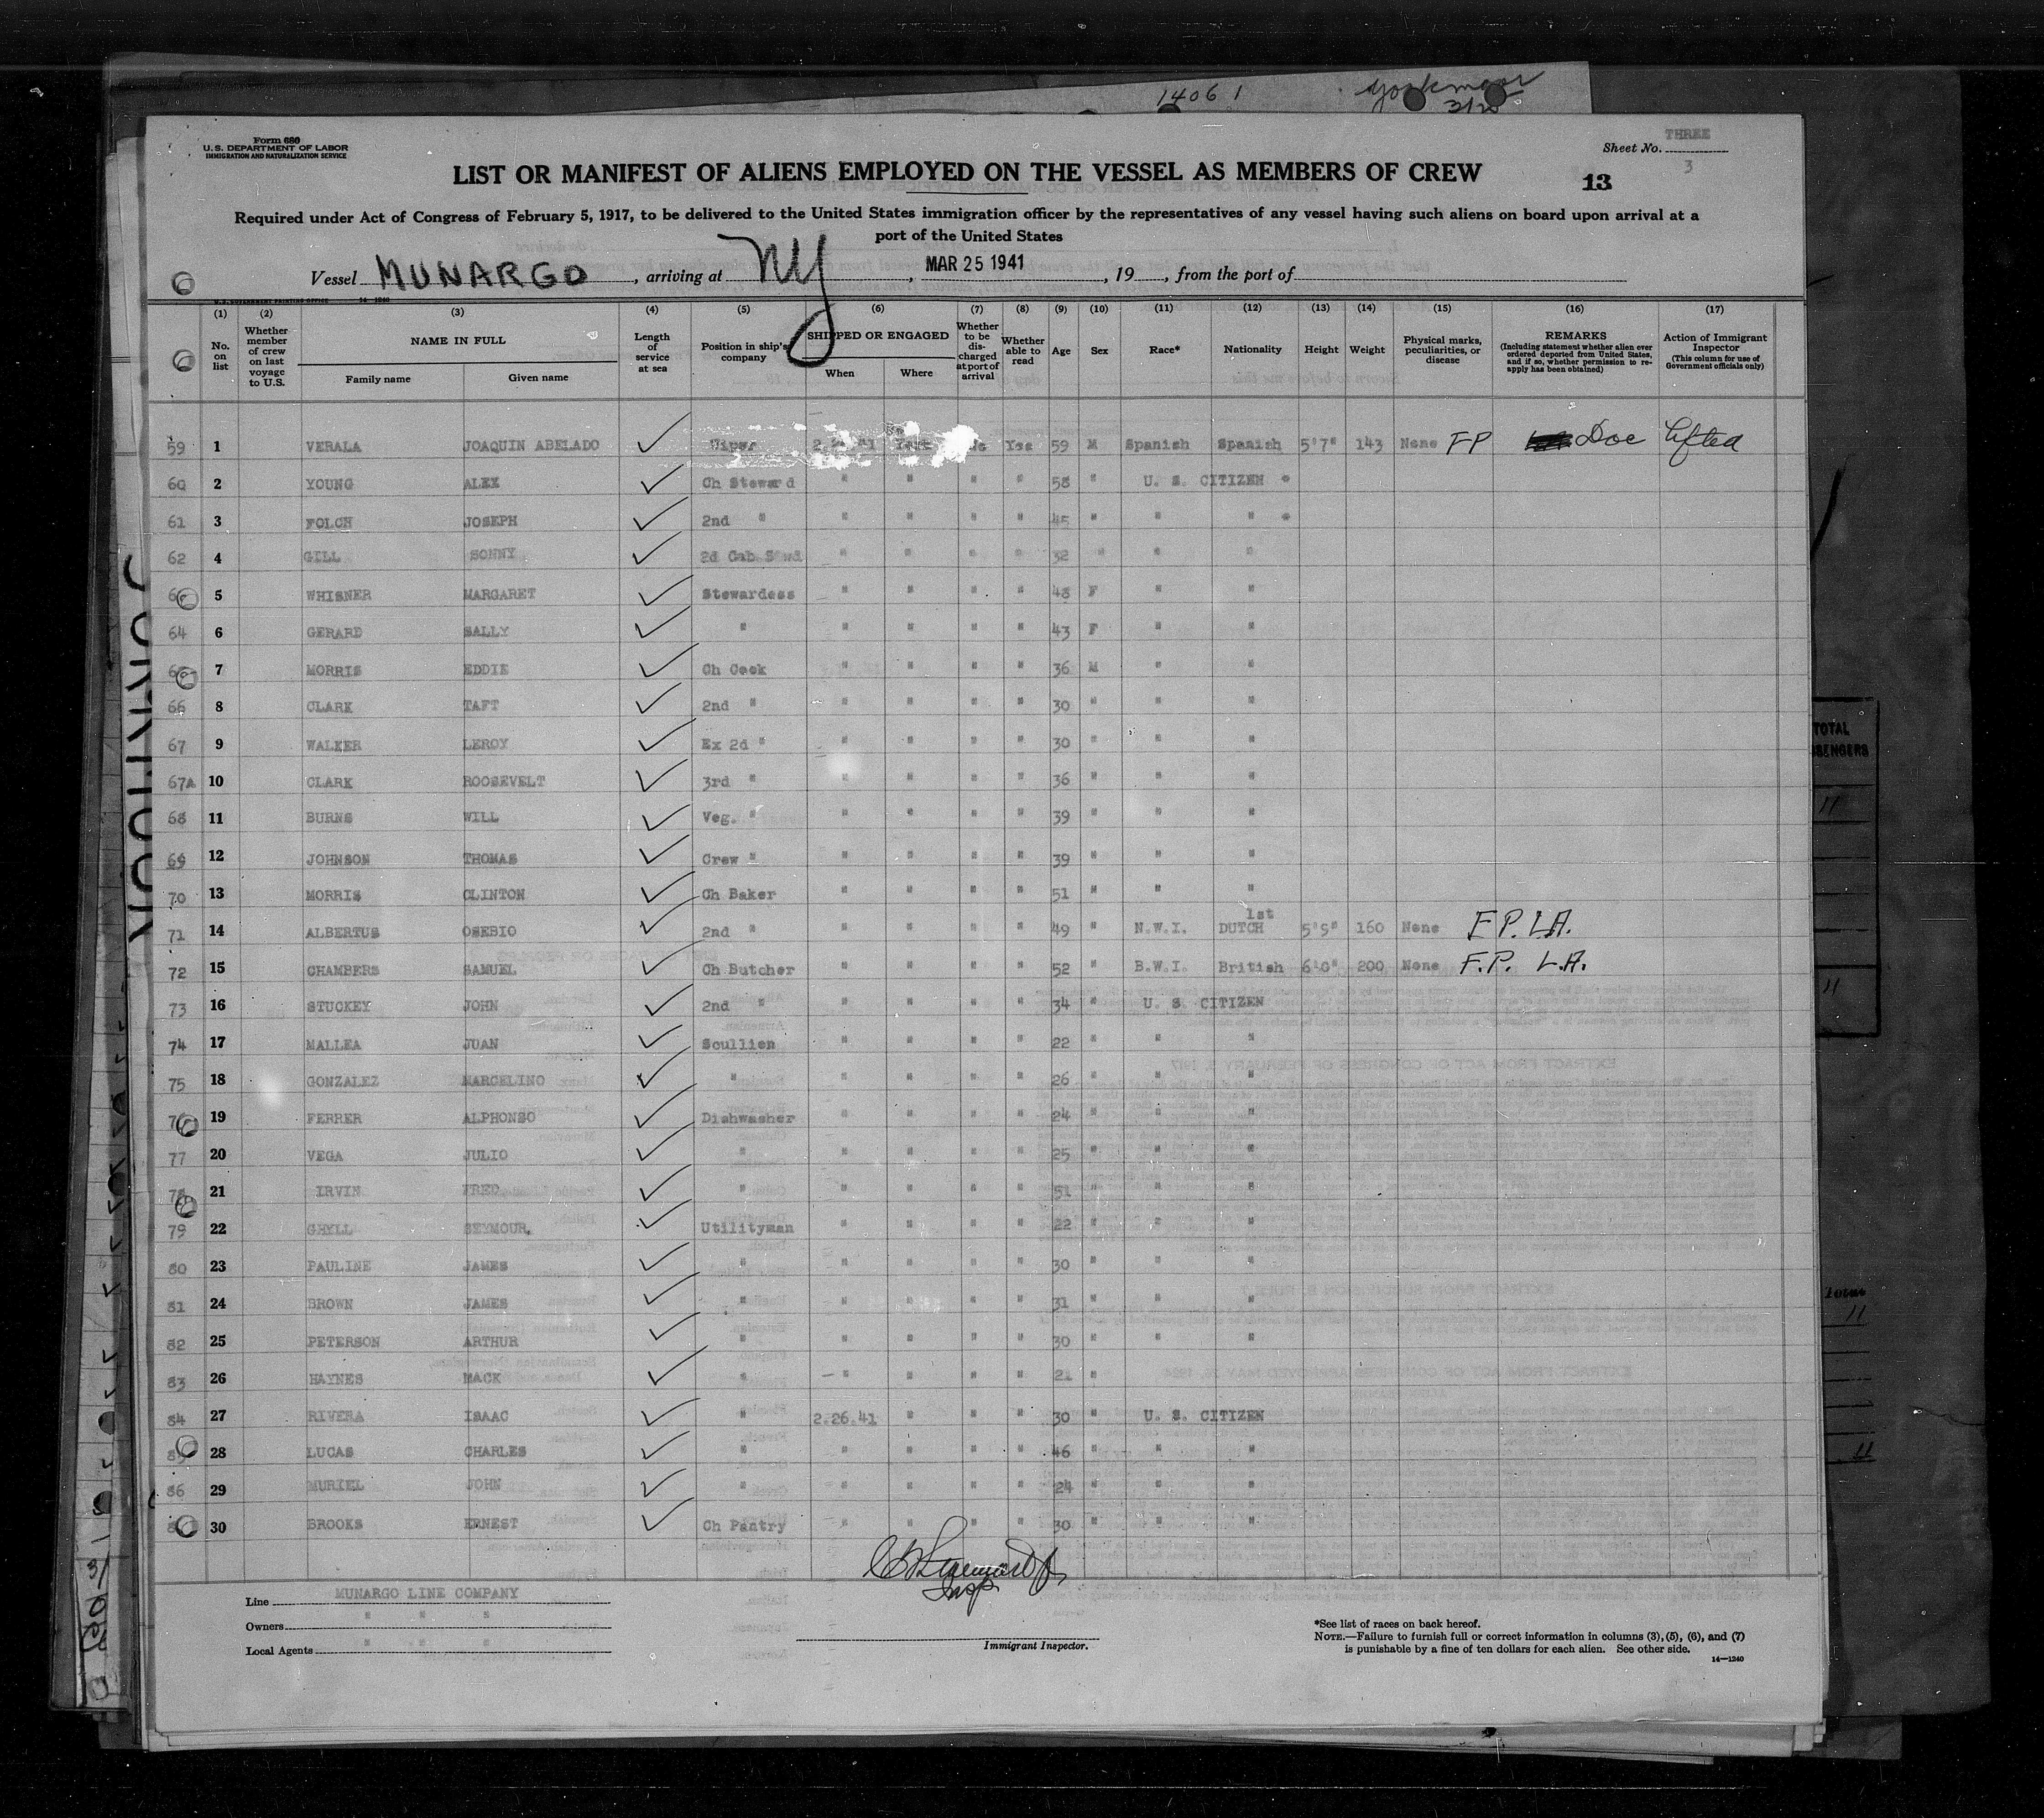 14061
Form 680
U. S. DEPARTMENT OF LABOR
IMMIGRATION AND NATURALIZATION SERVICE
THREE
Sheet No.
3
LIST OR MANIFEST OF ALIENS EMPLOYED ON THE VESSEL AS MEMBERS OF CREW
13
Required under Act of Congress of February 5, 1917, to be delivered to the United States immigration officer by the representatives of any vessel having such aliens on board upon arrival at a
port of the United States
Vessel MUNARGO, arriving at NY, MAR 25 1941, 19, from the port of
(1) (2) (3) (4) (5) (6) (7) (8) (9) (10) (11) (12) (13) (14) (15) (16) (17)
No. on list Whether member of crew on last voyage to U.S. NAME IN FULL Family name Given name Length of service at sea Position in ship's company SHIPPED OR ENGAGED When Where Whether to be discharged at port of arrival Whether able to read Age Sex Race* Nationality Height Weight Physical marks, peculiarities, or disease REMARKS (Including statement whether alien ever ordered deported from United States, and if so, whether permission to reapply has been obtained) Action of Immigrant Inspector (This column for use of Government officials only)
59 1 VERALA JOAQUIN ABELADO Wiper Yes 59 M Spanish Spanish 5'7" 143 None FP Doc lifted
60 2 YOUNG ALEX Ch Steward " " " " 58 " U. S. CITIZEN
61 3 FOLCH JOSEPH 2nd " " " " " 45 " " "
62 4 GILL SONNY 2d Cab " " " " 32 " " "
5 WHISNER MARGARET Stewardess " " " " 48 F " "
64 6 GERARD SALLY " " " " " 43 F " "
7 MORRIS EDDIE Ch Cook " " " " 36 M " "
66 8 CLARK TAFT 2nd " " " " " 30 " " "
67 9 WALKER LEROY Ex 2d " " " " " 30 " " "
67A 10 CLARK ROOSEVELT 3rd " " " " " 36 " " "
68 11 BURNS WILL Veg. " " " " " 39 " " "
69 12 JOHNSON THOMAS Crew " " " " " 39 " " "
70 13 MORRIS CLINTON Ch Baker " " " " 51 " " "
71 14 ALBERTUS OSEBIO 2nd " " " " " 49 " N.W.I. 1st DUTCH 5'5" 160 None F.P. L.A.
72 15 CHAMBERS SAMUEL Ch Butcher " " " " 52 " B.W.I. British 6'0" 200 None F.P. L.A.
73 16 STUCKEY JOHN 2nd " " " " " 34 " U. S. CITIZEN
74 17 MALLEA JUAN Scullien " " " " 22 " " "
75 18 GONZALEZ MARCELINO " " " " " 26 " " "
76 19 FERRER ALPHONSO Dishwasher " " " " 24 " " "
77 20 VEGA JULIO " " " " " 25 " " "
21 IRVIN FRED " " " " " 51 " " "
79 22 GHYLL SEYMOUR, Utilityman " " " " 22 " " "
80 23 PAULINE JAMES " " " " " 30 " " "
81 24 BROWN JAMES " " " " " 31 " " "
82 25 PETERSON ARTHUR " " " " " 30 " " "
83 26 HAYNES MACK " " " " " 21 "
84 27 RIVERA ISAAC " 2.26.41 " " " 30 " U. S. CITIZEN
28 LUCAS CHARLES " " " " " 46 " " "
86 29 MURIEL JOHN " " " " " 24 " " "
30 BROOKS ERNEST Ch Pantry " " " " 30 " " "
Insp.
Line MUNARGO LINE COMPANY
Owners " " "
Local Agents " " "
Immigrant Inspector.
*See list of races on back hereof.
NOTE.—Failure to furnish full or correct information in columns (3), (5), (6), and (7)
is punishable by a fine of ten dollars for each alien. See other side.
14—1240